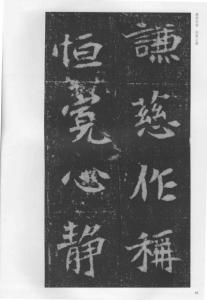 謙慈作稱
恒寬心静